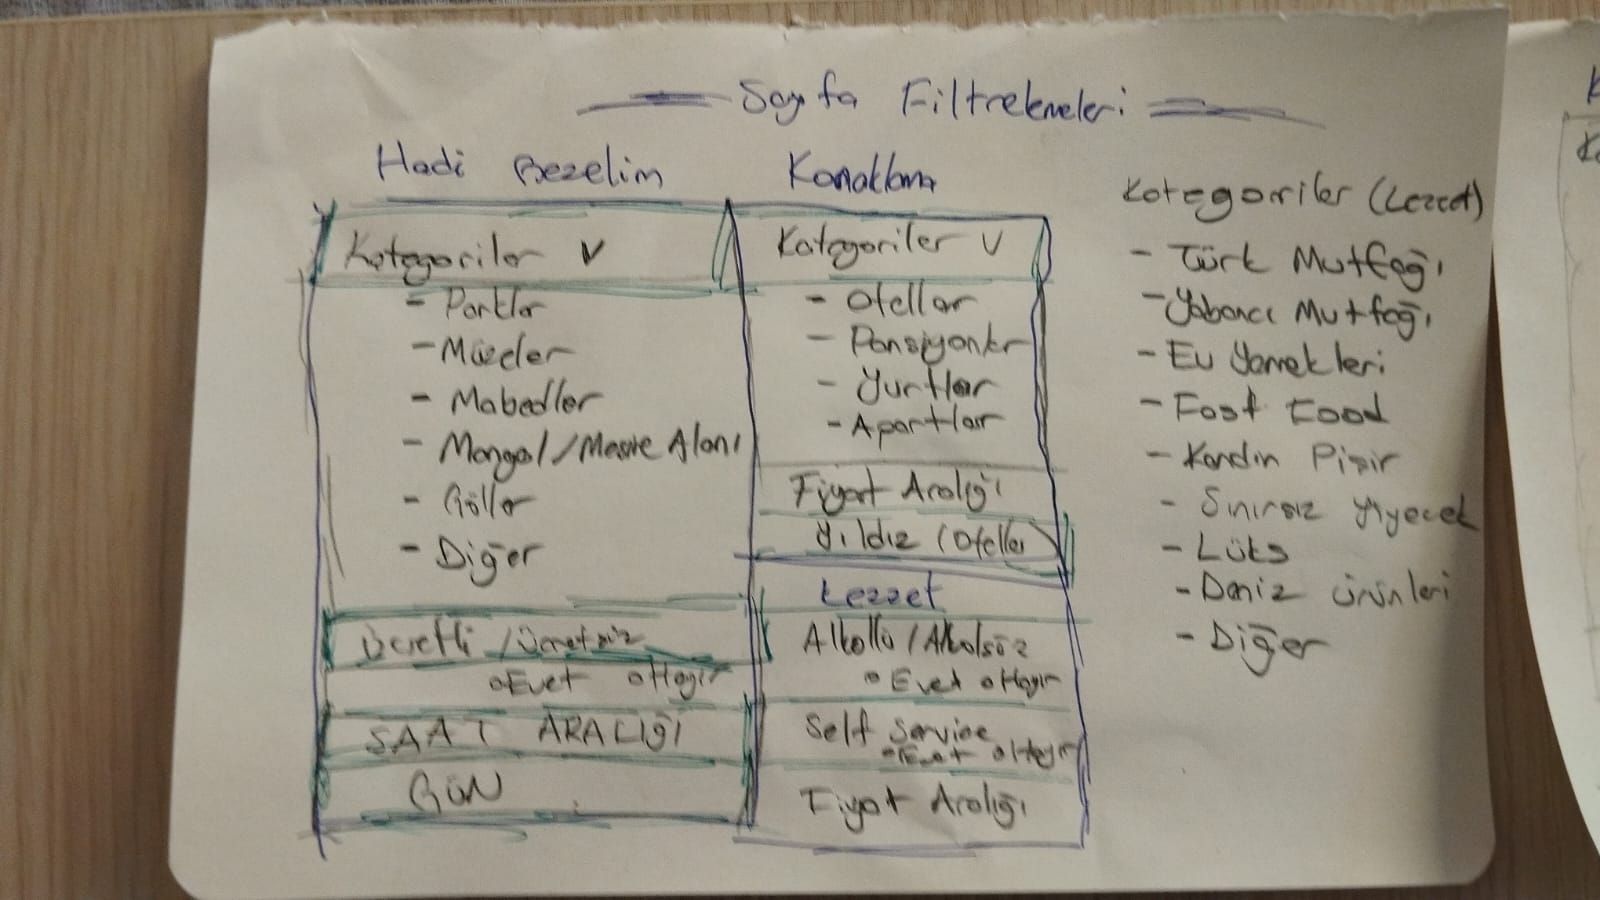 Sayfa Filtrelemeleri
Hadi Gezelim
Kategoriler V
- Parklar
- Müzeler
- Mabedler
- Mangal/Mesire Alanı
- Göller
- Diğer
Ücretli / Ücretsiz
Evet Hayır
SAAT ARALIĞI
GÜN
Konaklama
Kategoriler V
- Oteller
- Pansiyonlar
- Yurtlar
- Apartlar
Fiyat Aralığı
Yıldız (Oteller)
Lezzet
Alkollü / Alkolsüz
Evet Hayır
Self Service
Evet Hayır
Fiyat Aralığı
Kategoriler (Lezzet)
- Türk Mutfağı
- Yabancı Mutfağı
- Ev Yemekleri
- Fast Food
- Kendin Pişir
- Sınırsız Yiyecek
- Lüks
- Deniz Ürünleri
- Diğer